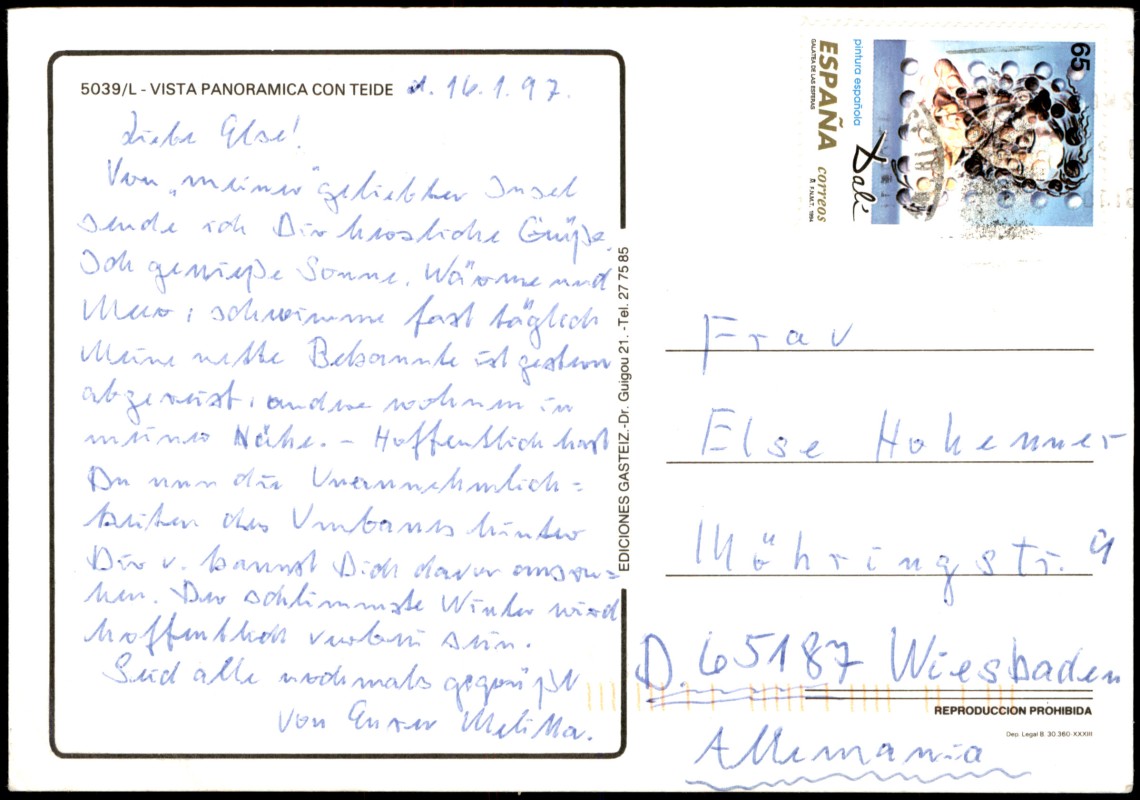 5039/L - VISTA PANORAMICA CON TEIDE d. 16.1.97.
Liebe Else!
Von "meiner" geliebten Insel
sende ich Dir herzliche Grüße.
Ich genieße Sonne, Wärme und
Meer, schwimme fast täglich
Meine nette Bekannte ist gestern
abgereist, andere wohnen in
meiner Nähe. - Hoffentlich hast
Du nun die Unannehmlich=
keiten des Umbaus hinter
Dir u. kannst Dich davon ausru=
hen. Der schlimmste Winter wird
hoffentlich vorbei sein.
Seid alle nochmals gegrüßt
von Eurer
EDICIONES GASTEIZ.-Dr. Guigou 21. -Tel. 27 75 85
65
pintura española
ESPAÑA correos
GALATEA DE LAS ESFERAS
F.N.M.T. 1994
Dalí
Frau
Else Hohenner
Möhringstr. 9
D. 65187 Wiesbaden
REPRODUCCION PROHIBIDA
Dep. Legal B. 30.360-XXXIII
Allemania